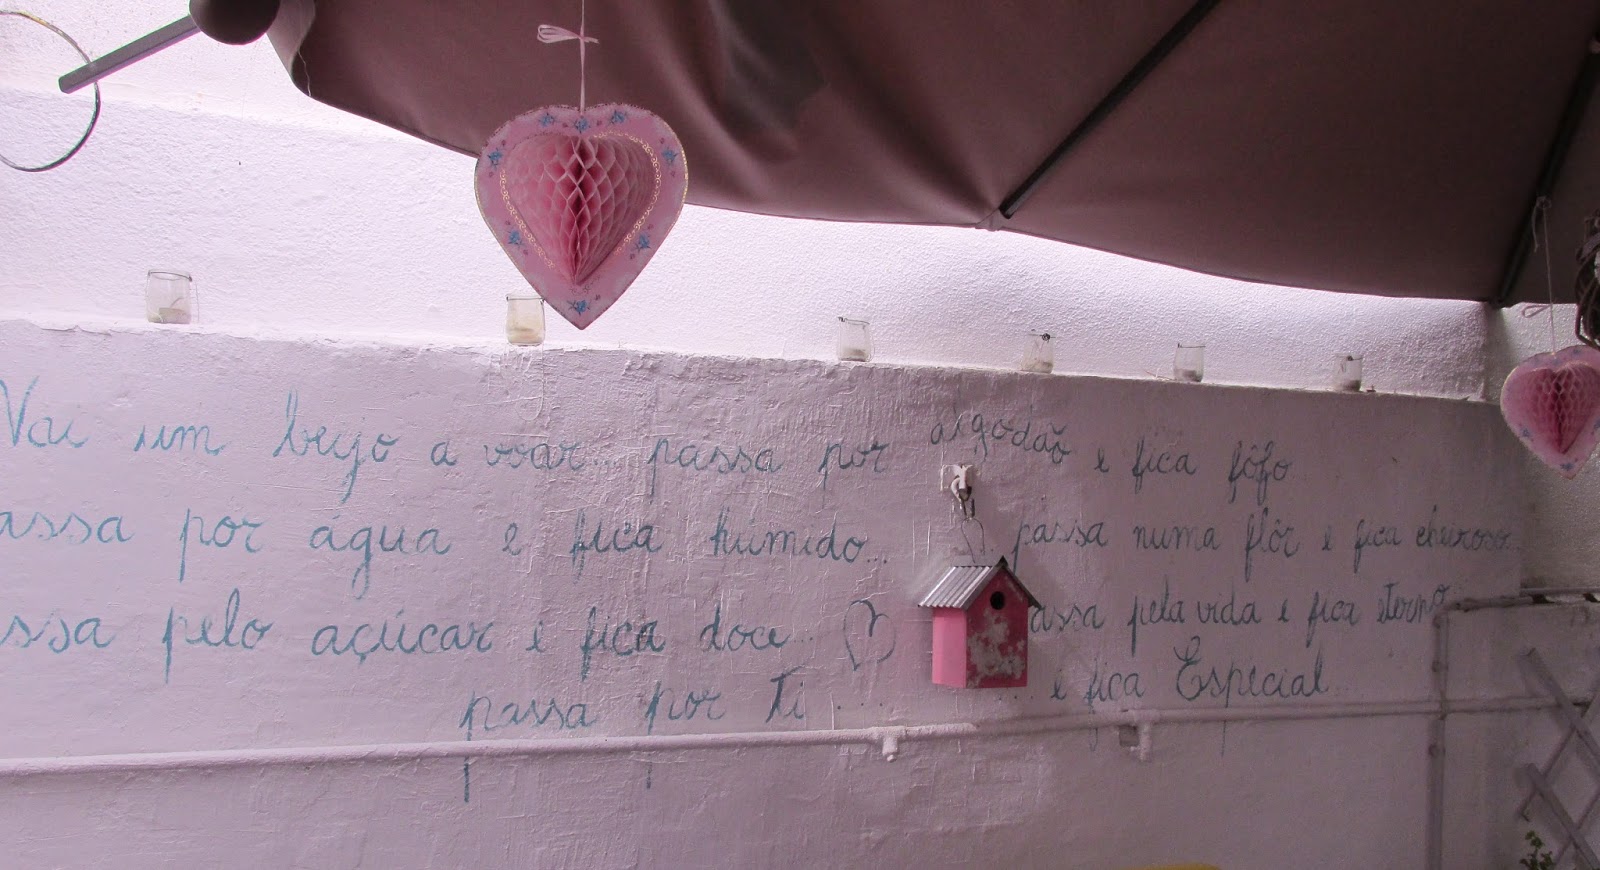 Vai um beijo a voar... passa por algodão e fica fôfo
assa por água e fica húmido... passa numa flôr e fica cheiroso...
ssa pelo açúcar e fica doce... assa pela vida e fica eterno
passa por Ti ... ... e fica Especial...